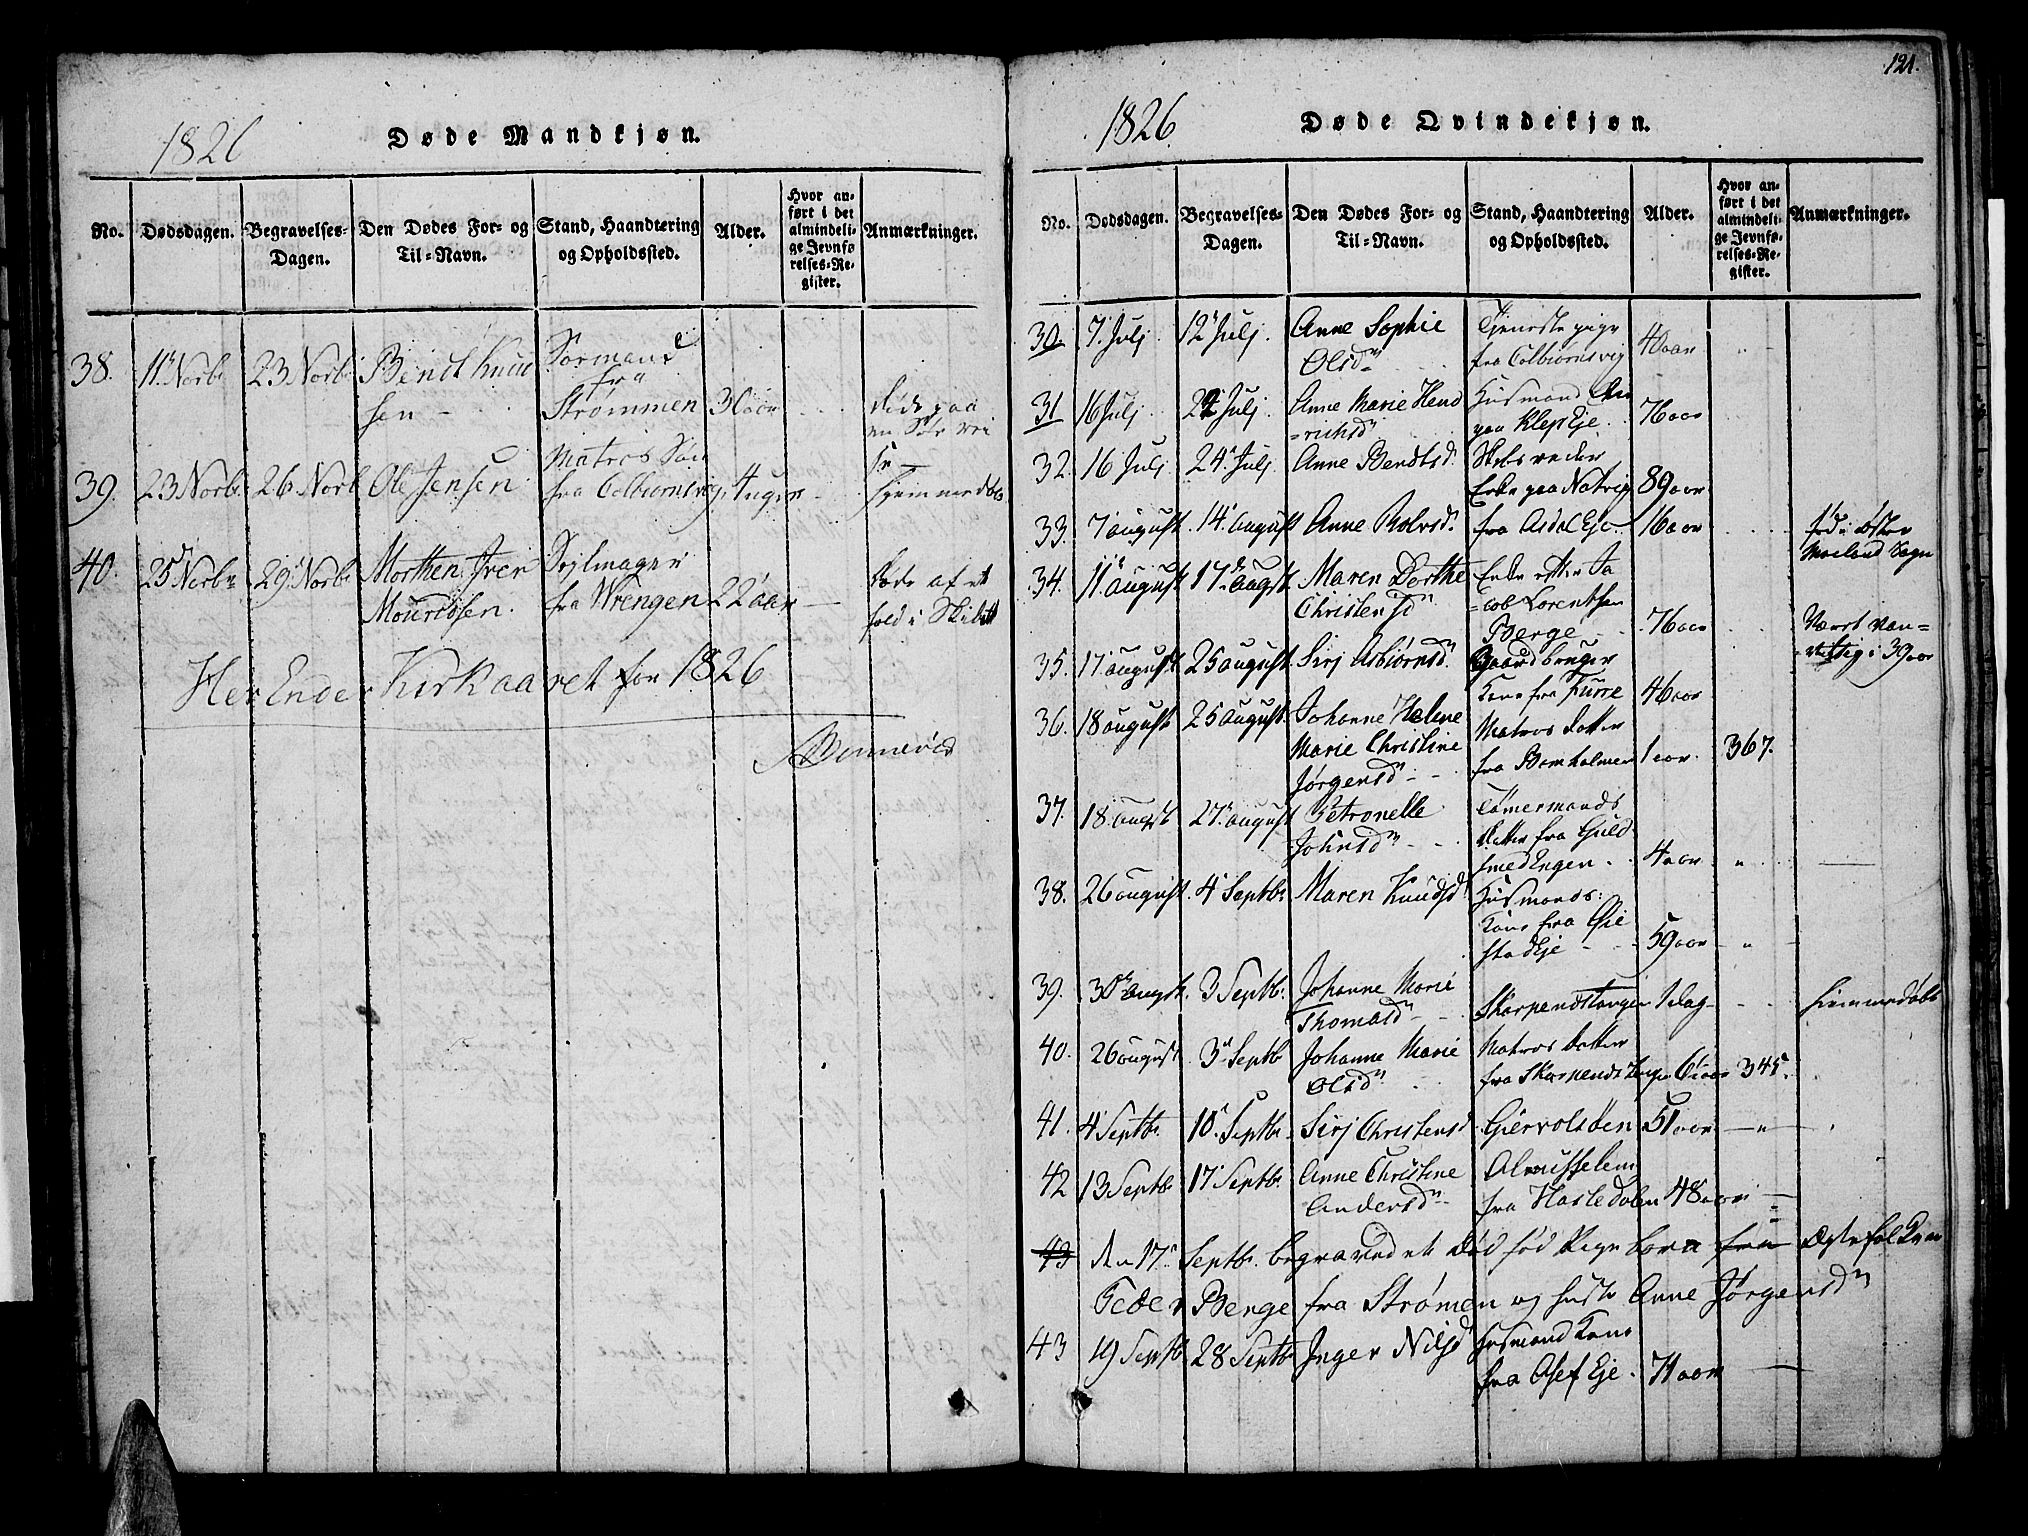 1826
Døde Mandkjøn.
No.
Dødsdagen.
Begravelses-
Dagen.
Den Dødes For- og
Til-Navn.
Stand, Haandtering
og Opholdssted.
Alder.
Hvor an-
ført i det
almindeli-
ge Jevnfø-
relses-Re-
gister.
Anmærkninger.
38. 11 Novb. 23 Novb. Bendt Knud
sen
Sørmand
fra
Strømmen 30 aar
døde paa
en
39. 23 Novb. 26 Novb. Ole Jensen
Matros Søn
fra Colbiornsvig 4 uger
hjemmedøbt
40. 25 Novb. 29 Novb. Morthen Iver
Mouridsen.
Sejlmager
fra Wrengen 22 aar
Døde af et
fald i Skibet
Her Ender Kirkaaret for 1826
121.
1826.
Døde Qvindekjøn.
No.
Dødsdagen.
Begravelses-
Dagen.
Den Dødes For- og
Til-Navn.
Stand, Haandtering
og Opholdssted.
Alder.
Hvor an-
ført i det
almindeli-
ge Jevnfø-
relses-Re-
gister.
Anmærkninger.
30. 7 Julj 12 Julj. Anne Sophie
Olsd.
Tjeneste pige
fra Colbiornsvig 40 aar
31 16 Julj 22 Julj. Anne Marie Hend
=richsd.
Husmand
paa KlepEje. 76 aar
32. 16 Julj 24 Julj. Anne Bendtsd.
Enke paa Natvig 89 aar
33. 7 august. 14 august Anne Rolvsd. fra Asdal Eje 16 aar
fød i Østre
Moeland Sogn
34. 11 august 17 augst. Maren Dorthe
Christensd.
Enke efter Ja
=cob Lorentsen
Berge 76 aar
Været van-
vittig i 39 aar
35. 17 august 25 august. Sirj Asbiørnsd.
Gaardbruger
Kone fra Furre 46 aar
36. 18 august 25 august. Johanne Helene
Marie Christine
Jørgensd.
Matros Datter
fra Bomholmen 1 aar. 367.
37. 18 augst 27 august Petronelle
Johnsd.
Tømermands
Datter fra Guld
smedEngen 4 aar
38. 26 august. 4 Septb. Maren Knudsd.
Husmands
Kone fra Øie
stadEje 59 aar
39. 30 augst. 3 Septb. Johanne Marie
Thomasd.
Skarpendstangen 1 dag
hiemmedøbt
40. 26 august 3 Septb Johanne Marie
Olsd.
Matros Datter
fra Skarpendstangen 345.
41. 4 Septb. 10 Septb. Sirj Christensd Giervolsden 51 aar
42 13 Septb. 17 Septb. Anne Christine
Andersd.
Almisselem
fra Hasledalen 48 aar
43 den 17. Septb. begraved et Død fød Pige barn fra Ægtefolkene
Peder Berge fra Strømen og hustr Anne Jørgensd.
43 19 Septb 28 Septb. Inger Nilsd.
Husmand Kone
fra Asef Eje. 71 aar